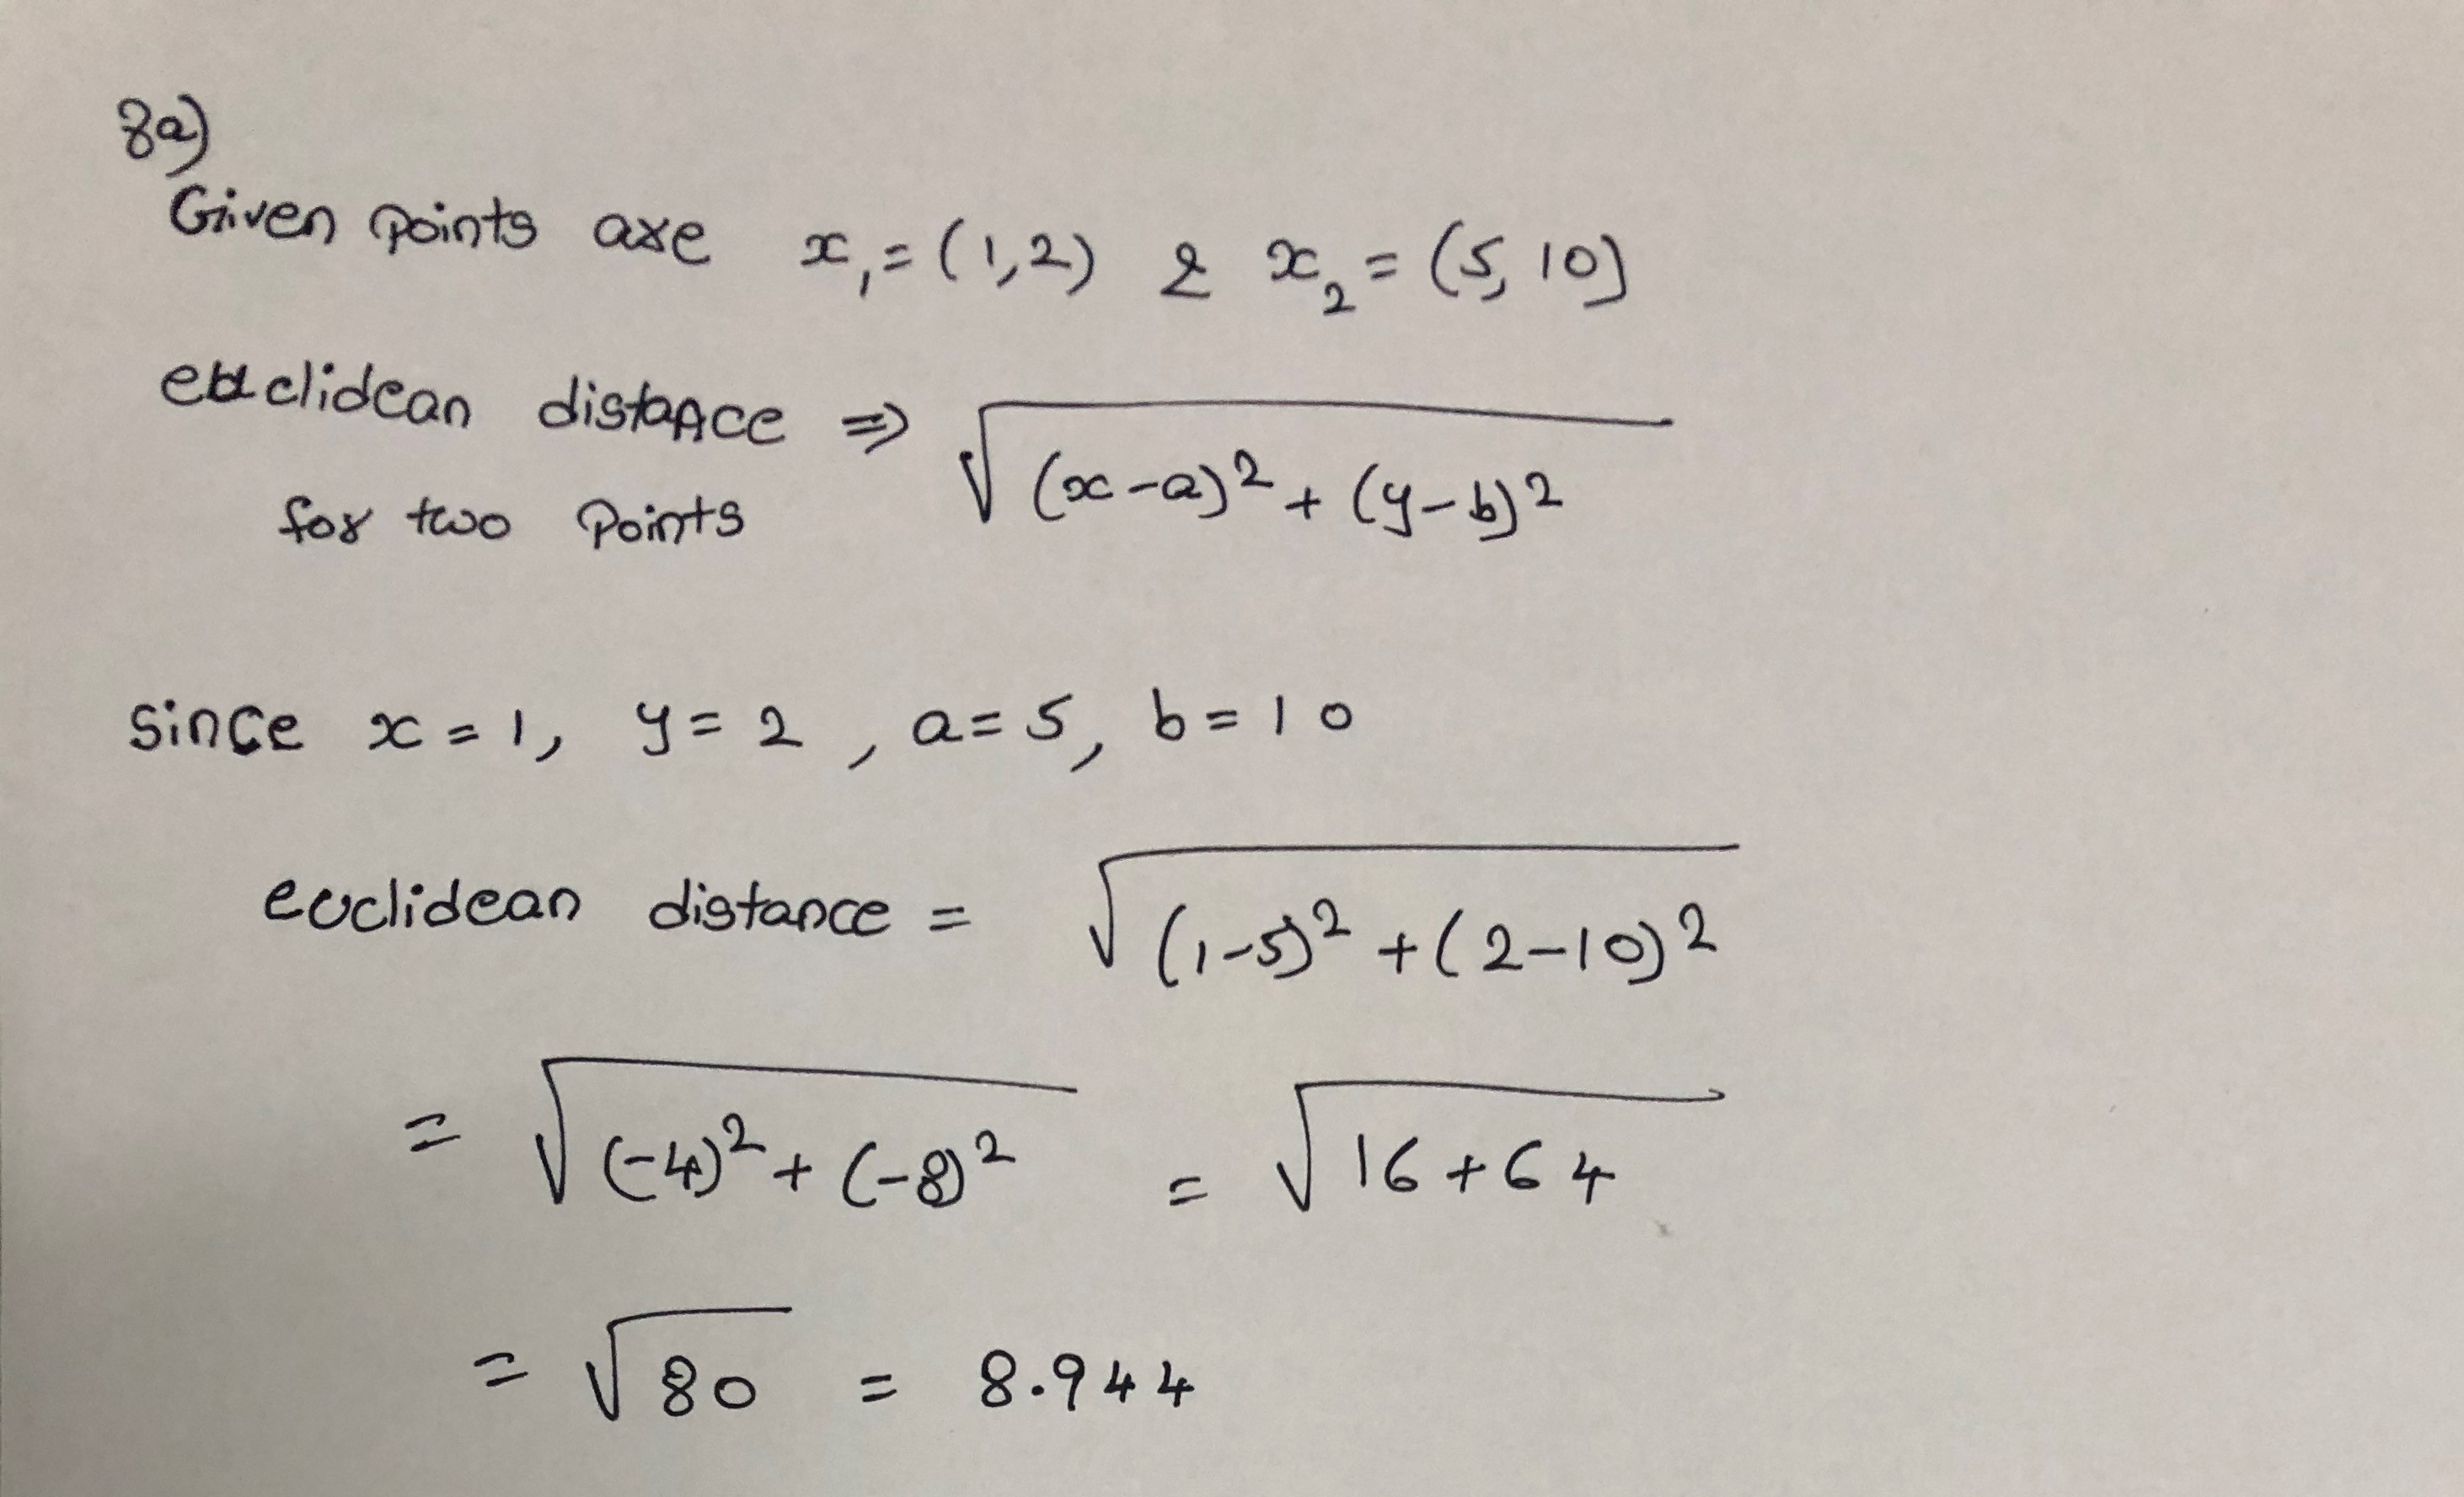 8a)
Given points are x₁ = (1,2) & x₂ = (5, 10)
euclidean distance ⇒ √((x-a)² + (y-b)²)
for two points
since x = 1, y = 2, a = 5, b = 10
euclidean distance = √((1-5)² + (2-10)²)
= √((-4)² + (-8)²) = √(16+64)
= √80 = 8.944